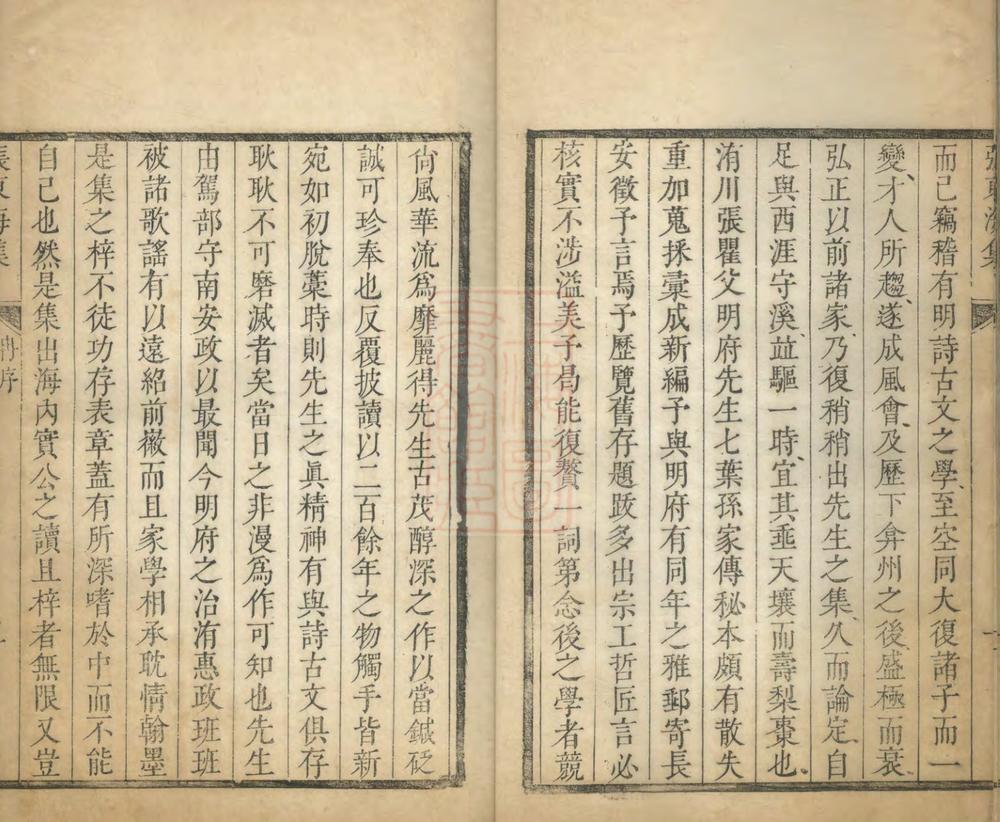 張東海集
而已竊稽有明詩古文之學至空同大復諸子而一
變才人所趨遂成風會及歷下弇州之後盛極而衰
弘正以前諸家乃復稍稍出先生之集久而論定自
足與西涯守溪並驅一時宜其垂天壤而壽梨棗也
洧川張瞿父明府先生七葉孫家傳秘本頗有散失
重加蒐採彙成新編予與明府有同年之雅郵寄長
安徵予言焉予歷覽舊存題跋多出宗工哲匠言必
核實不涉溢美予曷能復贅一詞第念後之學者競
尙風華流爲靡麗得先生古茂醇深之作以當鍼砭
誠可珍奉也反覆披讀以二百餘年之物觸手皆新
宛如初脫藁時則先生之眞精神有與詩古文俱存
耿耿不可磨滅者矣當日之非漫爲作可知也先生
由駕部守南安政以最聞今明府之治洧惠政班班
被諸歌謠有以遠紹前徽而且家學相承耽情翰墨
是集之梓不徒功存表章蓋有所深嗜於中而不能
自己也然是集出海內實公之讀且梓者無限又豈
張東海集
序